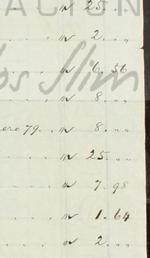 ACION
" 25...
" 2...
" 6.56
os Slim
" 8...
ere 79... " 8...
" 25...
" 7.98
" 1.64
" 2...